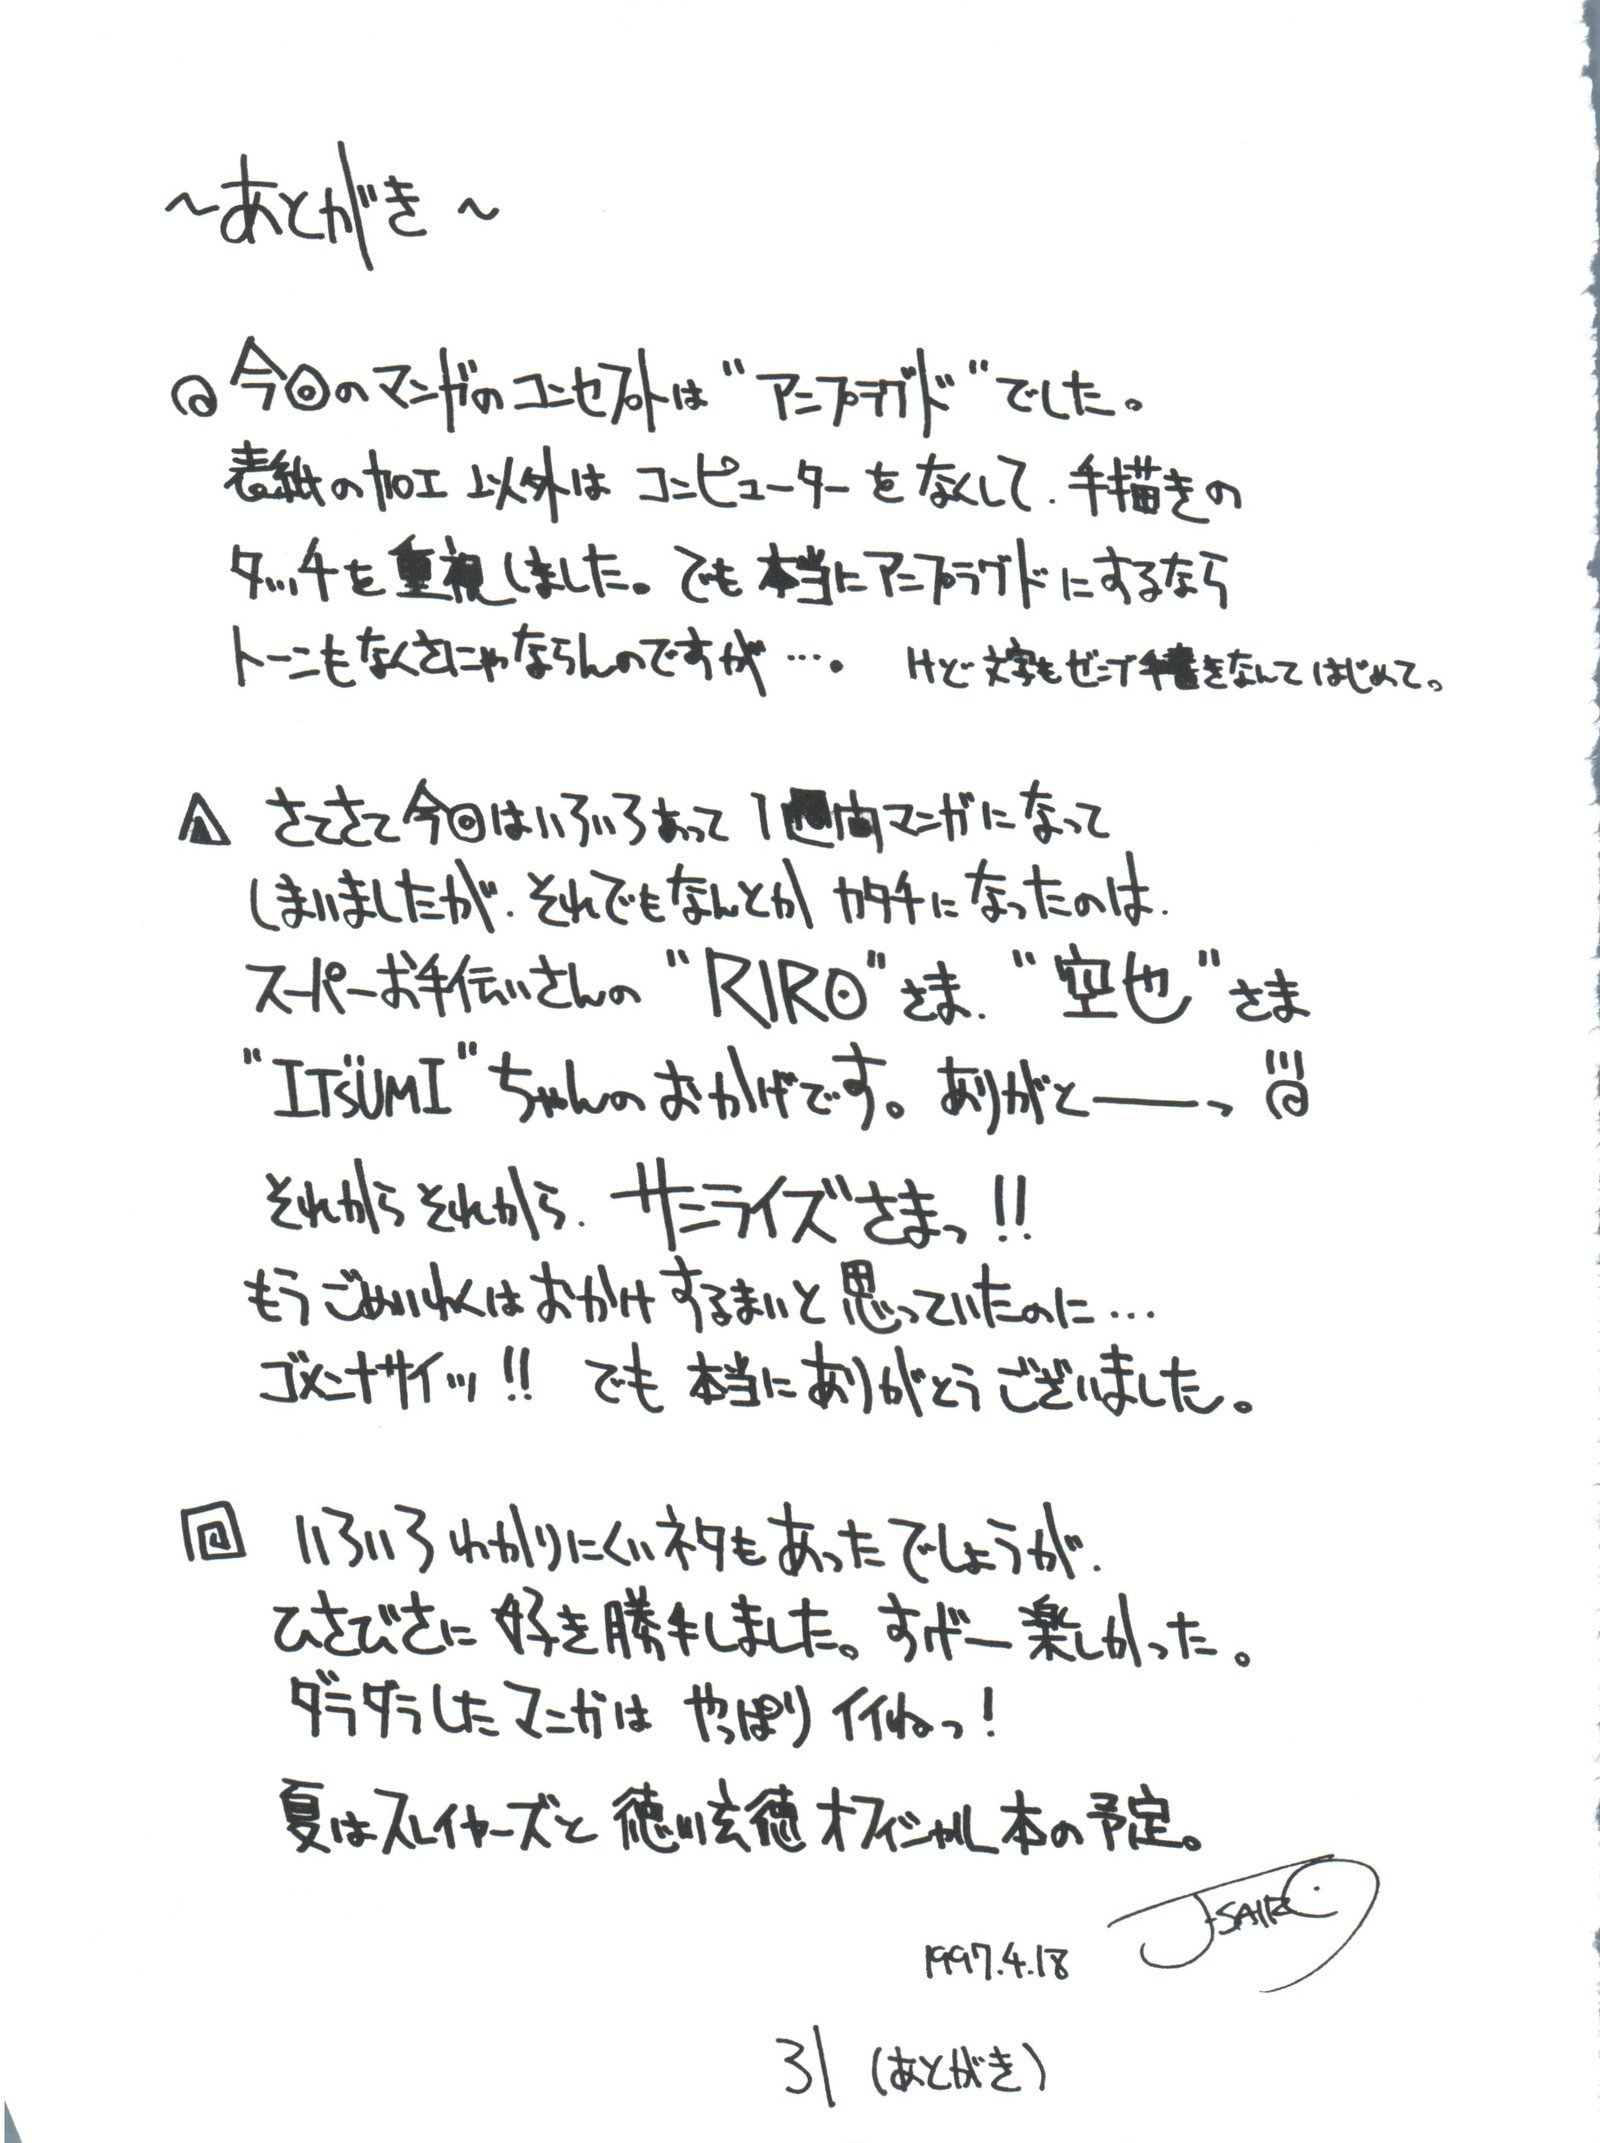 ～あとがき～
今回のマンガのコンセプトは"アンプラグド"でした。
表紙の加工以外はコンピューターをなくして、手描きの
タッチを重視しました。でも本当にアンプラグドにするなら
トーンもなくさにゃならんのですが…。 けど文字もゼンブ手書きなんてはじめて。
さてさて今回はいろいろあって1週間マンガになって
しまいましたが、それでもなんとかカタチになったのは、
スーパーお手伝いさんの"RIRO"さま、"空也"さま
"ITSUMI"ちゃんのおかげです。ありがと――っ
それからそれから、サンライズさまっ!!
もうごめいわくはおかけするまいと思っていたのに…
ゴメンナサイッ!! でも本当にありがとうございました。
いろいろわかりにくいネタもあったでしょうが、
ひさびさに好き勝手しました。すげー楽しかった。
ダラダラしたマンガはやっぱりイイねっ!
夏はスレイヤーズと徳川玄徳オフィシャル本の予定。
J-SAIRO
1997.4.18
31 (あとがき)